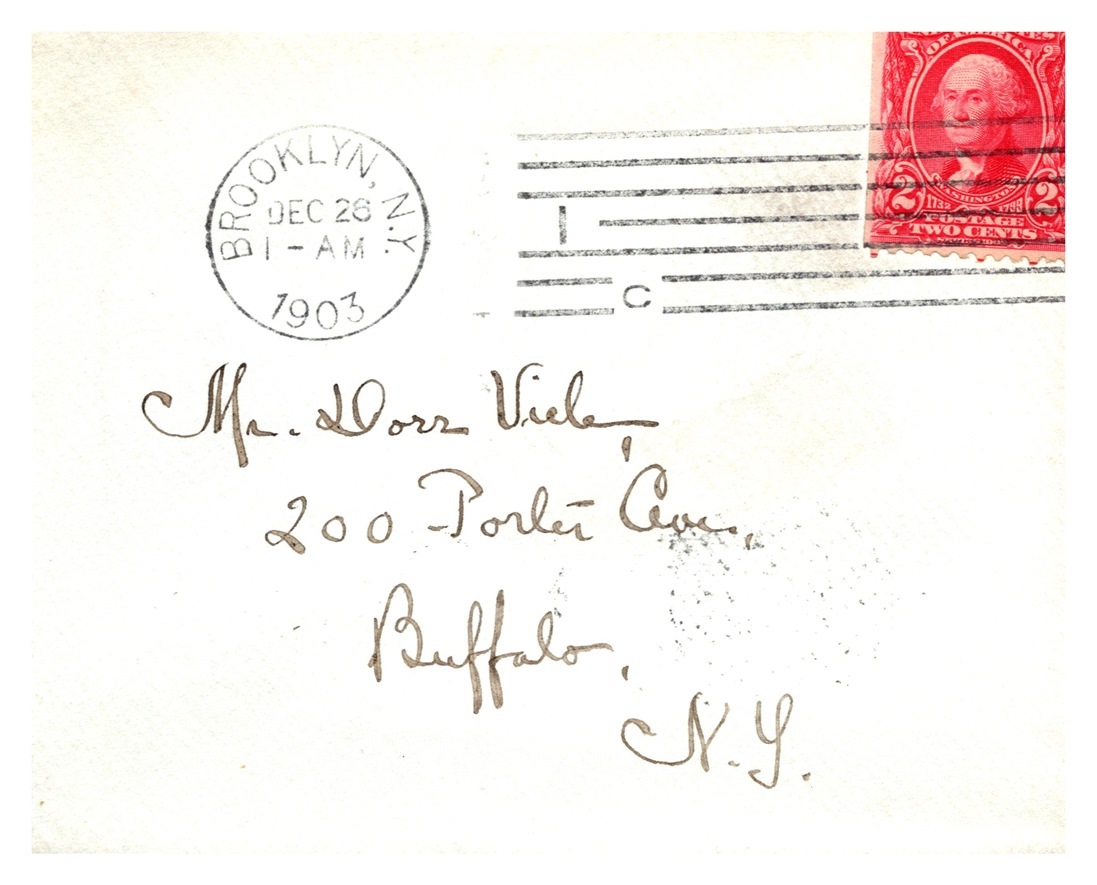 OF AMERICA
BROOKLYN, N.Y.
DEC 26
1 - AM
1903
1
C
2 WASHINGTON 2
1732 1799
POSTAGE
TWO CENTS
Mr. Dorr Viele,
200 Porter Ave.,
Buffalo,
N.Y.